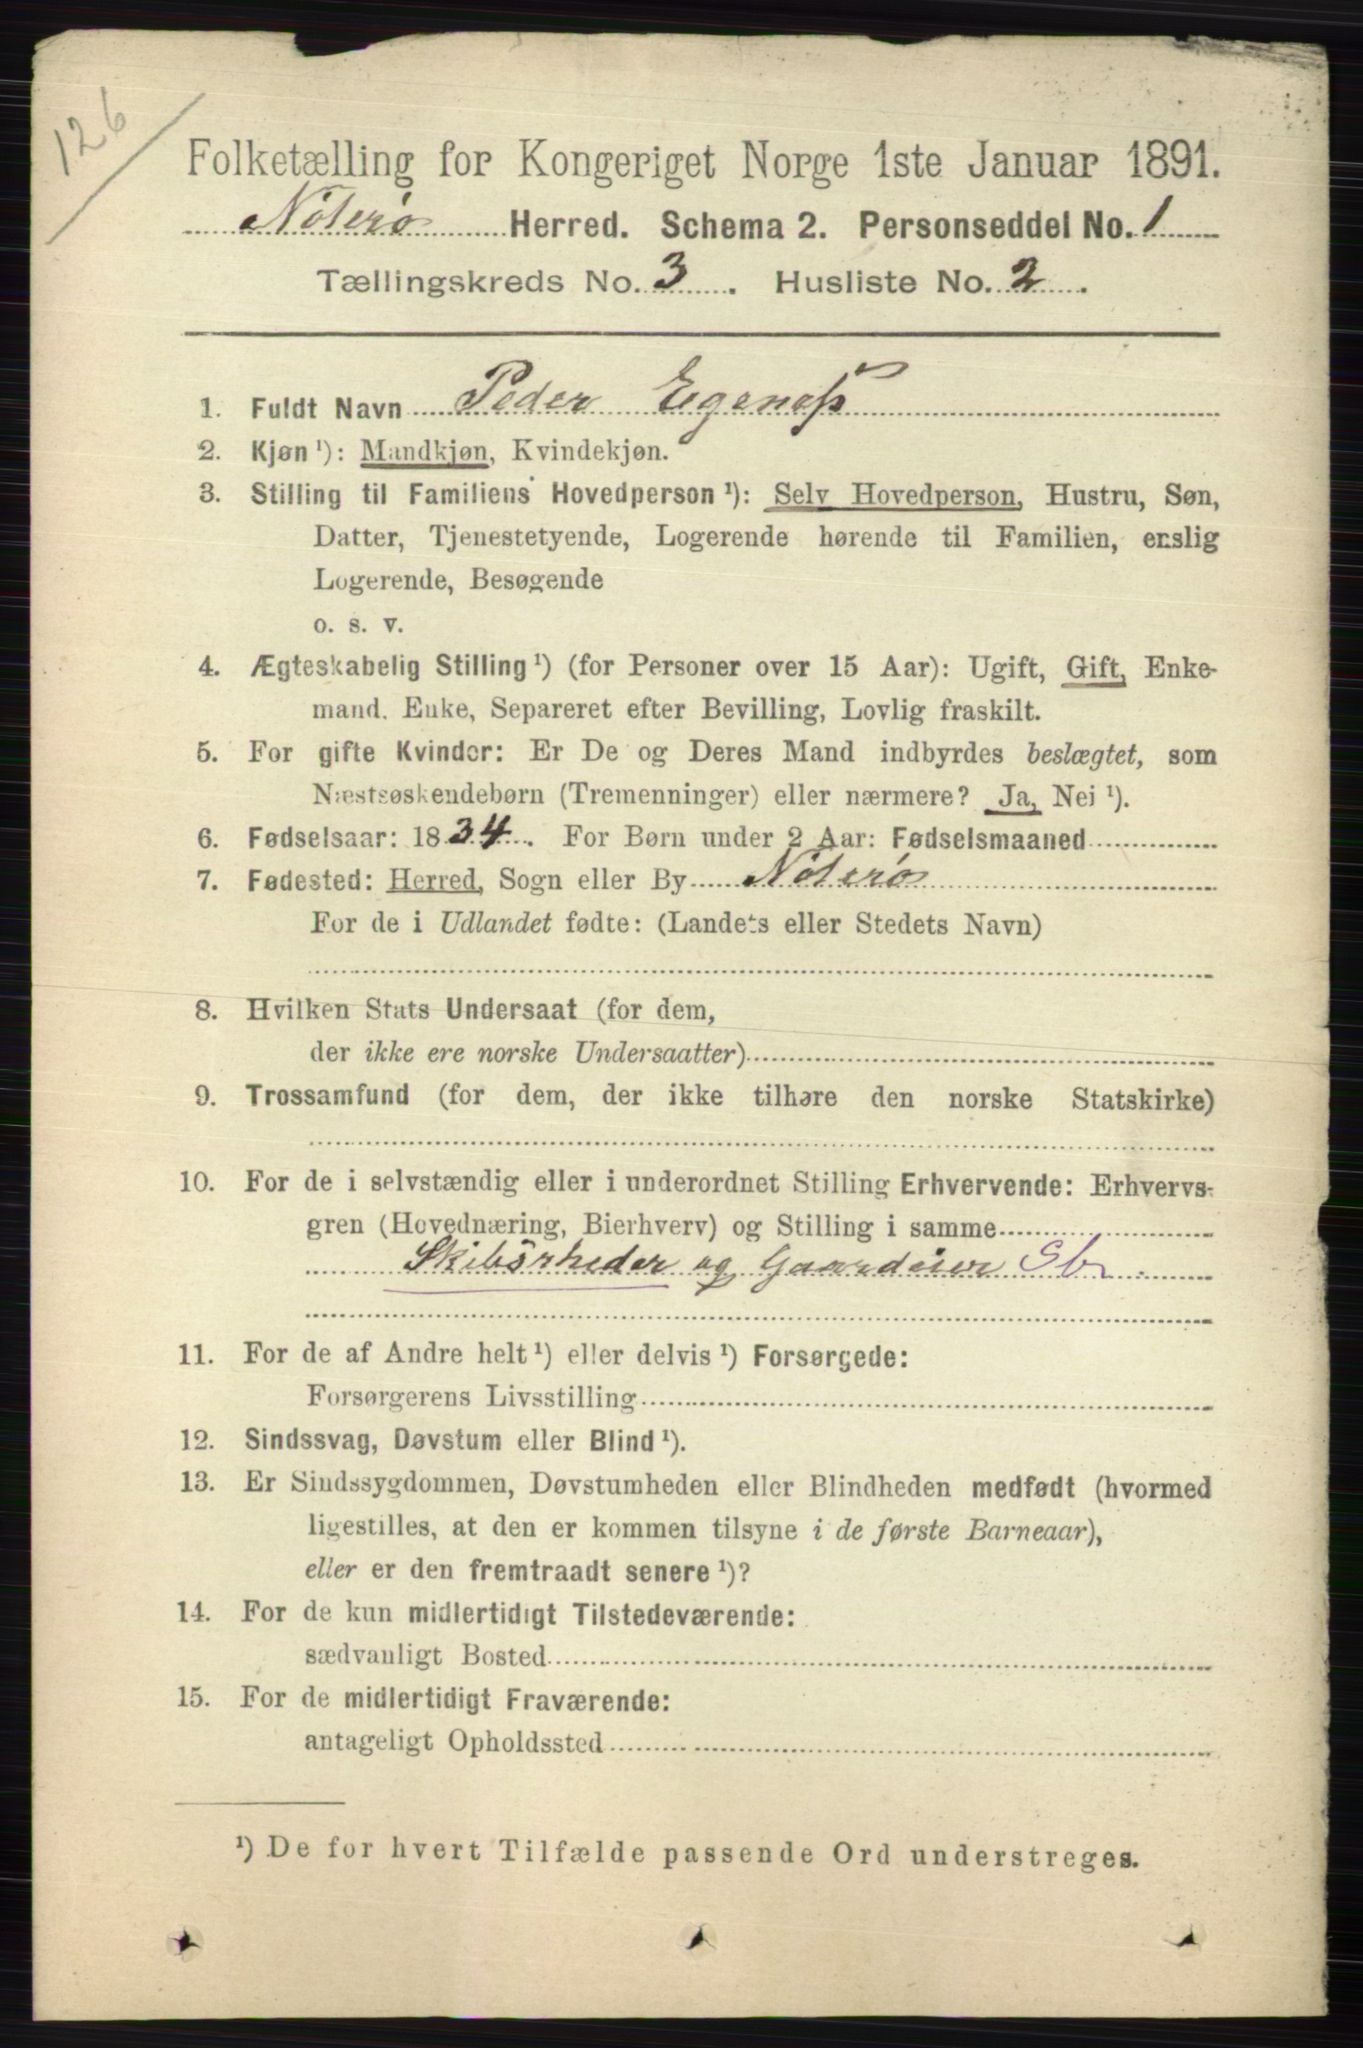 126
Folketælling for Kongeriget Norge 1ste Januar 1891.
Nøterø Herred. Schema 2. Personseddel No. 1
Tællingskreds No. 3. Husliste No. 2.
1. Fuldt Navn Peder Egenæss
2. Kjøn ¹): Mandkjøn, Kvindekjøn.
3. Stilling til Familiens Hovedperson ¹): Selv Hovedperson, Hustru, Søn,
Datter, Tjenestetyende, Logerende hørende til Familien, enslig
Logerende, Besøgende
o. s. v.
4. Ægteskabelig Stilling ¹) (for Personer over 15 Aar): Ugift, Gift, Enke-
mand, Enke, Separeret efter Bevilling, Lovlig fraskilt.
5. For gifte Kvinder: Er De og Deres Mand indbyrdes beslægtet, som
Næstsøskendebørn (Tremenninger) eller nærmere? Ja, Nei ¹).
6. Fødselsaar: 1834. For Børn under 2 Aar: Fødselsmaaned
7. Fødested: Herred, Sogn eller By Nøterø
For de i Udlandet fødte: (Landets eller Stedets Navn)
8. Hvilken Stats Undersaat (for dem,
der ikke ere norske Undersaatter)
9. Trossamfund (for dem, der ikke tilhøre den norske Statskirke)
10. For de i selvstændig eller i underordnet Stilling Erhvervende: Erhvervs-
gren (Hovednæring, Bierhverv) og Stilling i samme
Skibsrheder og Gaardeier Sb
11. For de af Andre helt ¹) eller delvis ¹) Forsørgede:
Forsørgerens Livsstilling
12. Sindssvag, Døvstum eller Blind ¹).
13. Er Sindssygdommen, Døvstumheden eller Blindheden medfødt (hvormed
ligestilles, at den er kommen tilsyne i de første Barneaar),
eller er den fremtraadt senere ¹)?
14. For de kun midlertidigt Tilstedeværende:
sædvanligt Bosted
15. For de midlertidigt Fraværende:
antageligt Opholdssted
¹) De for hvert Tilfælde passende Ord understreges.